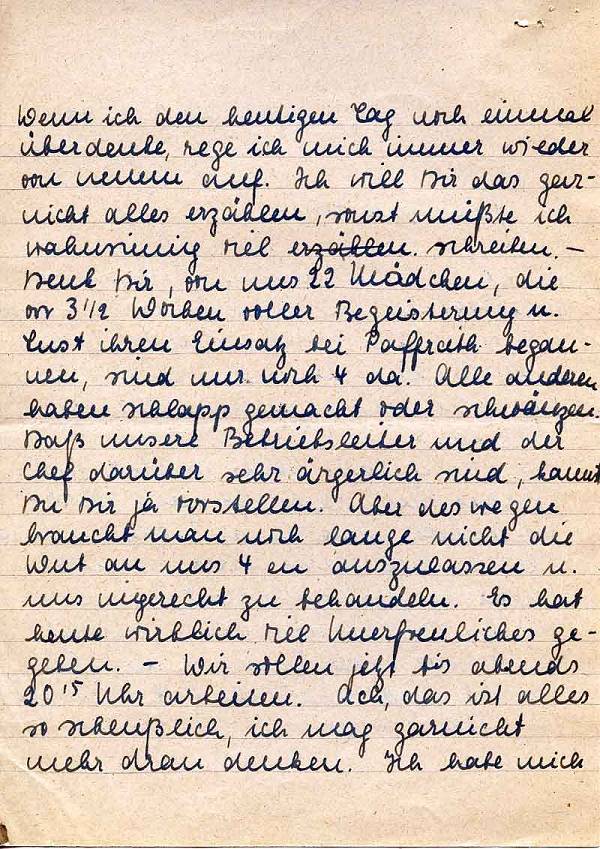 Wenn ich den heutigen Tag noch einmal
überdenke, rege ich mich immer wieder
von neuem auf. Ich will Dir das gar-
nicht alles erzählen, sonst müßte ich
wahnsinnig viel erzählen. schreiben. –
Denk Dir, von uns 22 Mädchen, die
vor 3 1/2 Wochen voller Begeisterung u.
Lust ihren Einsatz bei Paffrath began-
nen, sind nur noch 4 da. Alle anderen
haben schlapp gemacht oder schwänzen.
Daß unsere Betriebsleiter und der
Chef darüber sehr ärgerlich sind, kannst
Du Dir ja vorstellen. Aber deswegen
braucht man noch lange nicht die
Wut an uns 4 en auszulassen u.
uns ungerecht zu behandeln. Es hat
heute wirklich viel Unerfreuliches ge-
geben. – Wir sollen jetzt bis abends
20 15 Uhr arbeiten. Ach, das ist alles
so scheußlich, ich mag garnicht
mehr dran denken. Ich habe mich